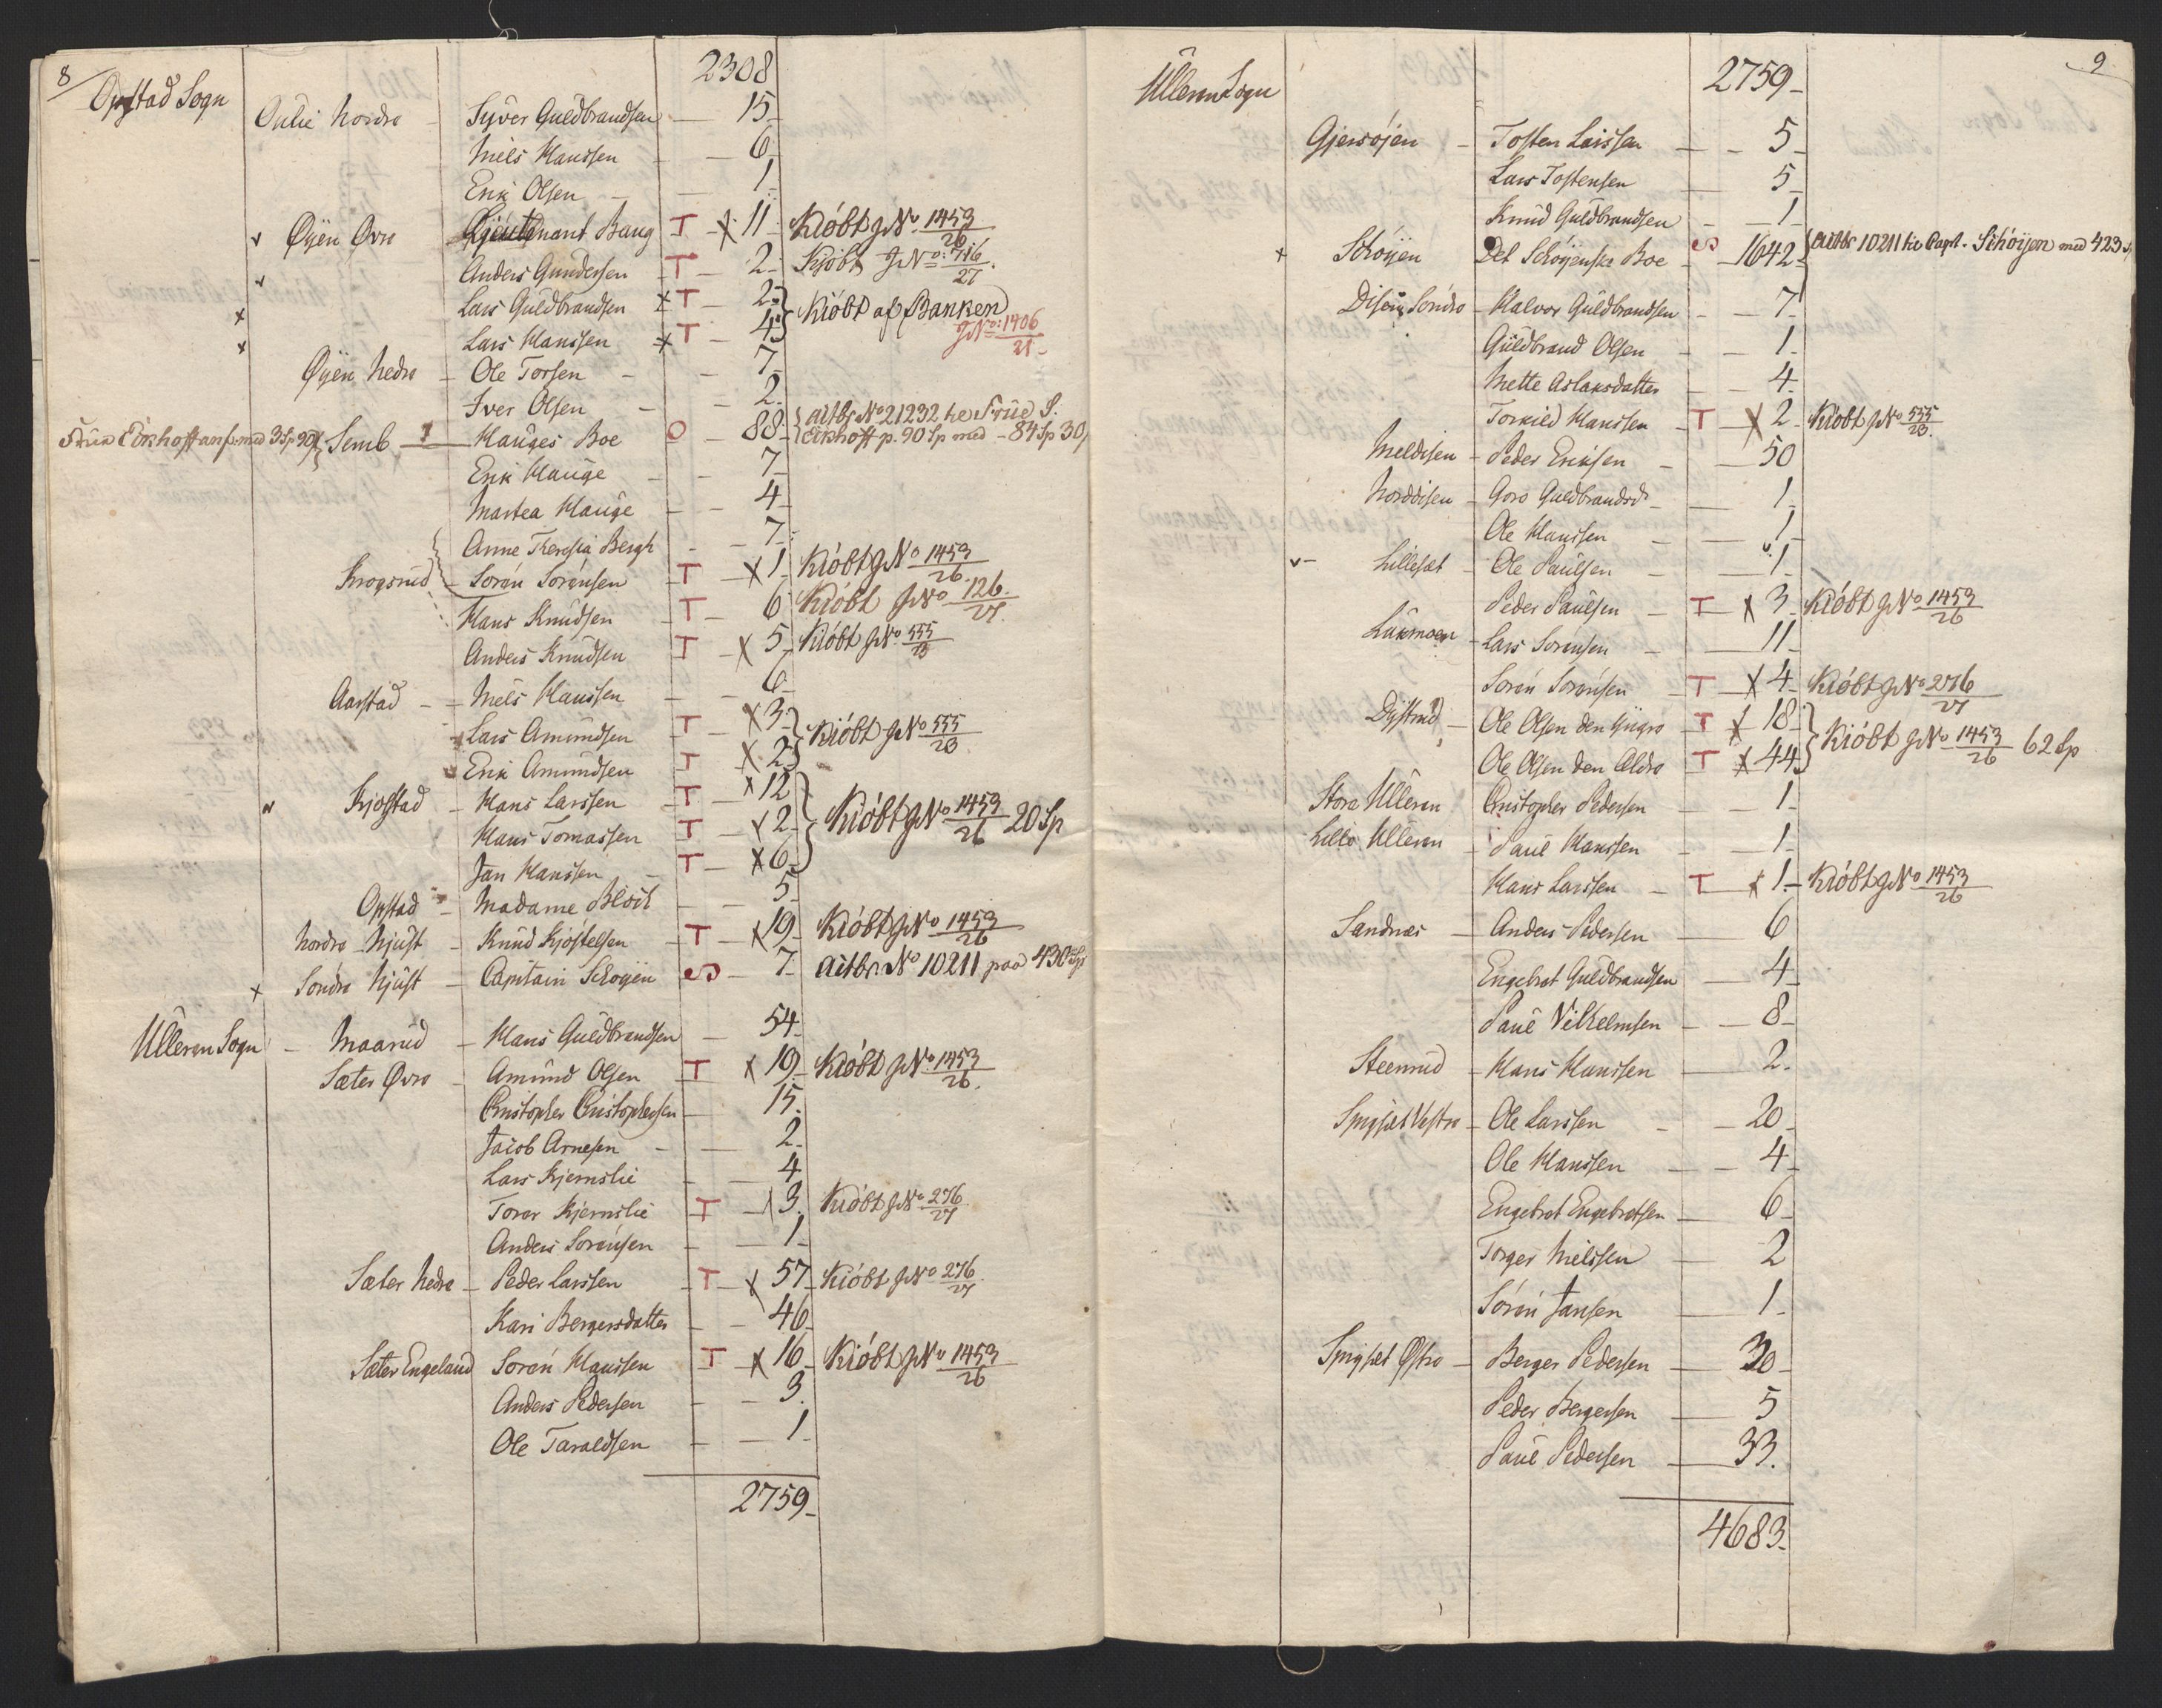 8
Opstad Sogn 2308
Oulie Nordre - Syver Guldbrandsen - 15-
Niels Hanssen - 6-
Erik Olsen - 1-
v Øÿen Øvre Lieutenant Baug T x 11 Kióbt JNo 1453/26
v Anders Gundersen T - 2- Kjóbt JNo: 716/27.
x Lars Guldbrandsen x T - 2 } Kióbt af Banken
x Lars Hanssen x T - 4 } JNo: 1406/21-
Øÿen Nedre - Ole Torsen - 7-
Iver Olsen - 2-
Frue Eckhoff anf. med 3 Sp 90 Semb 1 Hauges Boe O - 88- { Aitbr No 21232 he Frue S.
Eckhoff p. 90 Sp med - 84 Sp 30
Erik Hauge - 7-
Martea Hauge - 4-
Anne Thersia Bergh - 7-
Krogsrud - Sorén Sorénsen T x 1- Kióbt JNo 1453/26.
Hans Knudsen T - 6 Kióbt JNo 126./27.
Anders Knudsen T - x 5 Kióbt JNo 555/23
Aarstad - Niels Hanssen - 6-
Lars Amundsen T x 3- } Kióbt JNo 555/23
Erik Amundsen T x 2 }
v Kjostad - Hans Larssen T x 12 }
Hans Tomassen T x 2- } Kióbt JNo 1453/26 20 Sp
Jan Hanssen T x 6- }
Opstad - Madame Block - 5-
Nordre Njust - Knud Kjostelsen T x 19- Kióbt JNo 1453/26
x Sondre Njust - Capitain Schoyen S - 7- Aitbr. No 10211 paa 430 Sp
Ulleren Sogn - Maarud - Hans Guldbrandsen - 54-
Sæter Øvre - Amund Olsen T x 19- Kióbt JNo 1453/26.
Christopher Christophersen - 15.
Jacob Arnesen - 2-
Lars Kjernslie - 4
Torer Kjernslie T x 3. Kióbt JNo 276/27
Anders Sorensen - 1-
Sæter Nedre - Peder Larssen T - x 57- Kióbt JNo 276/27
Kari Bergersdatter - 46-
Sæter Engeland Sorén Hanssen T - x 16- Kióbt JNo 1453/26
Anders Pedersen - 3.
Ole Taraldsen - 1-
2759-
9
Ulleren Sogn 2759-
Gjersójen - Tosten Larssen - 5-
Lars Tostensen - 5-
Knud Guldbrandsen - 1-
x Schóyen Det Schóyenske Boe S - 1642- { Aitbr 10211 he Capt. Schóyen med 423 Sp
Disen Sondre - Halvor Guldbrandsen - 7-
Guldbrand Olsen - 1-
Mette Aslaksdatter - 4-
Torkild Hanssen T x 2- Kióbt JNo 555/23.
Meldisen - Peder Eriksen - 50
Norddisen - Goro Guldbrandsd. - 1-
Ole Hanssen - 1-
v - Lillesæt - Ole Paulsen - 1-
Peder Paulsen - T x 3- Kióbt JNo 1453/26
Lukmoen - Lars Sorensen - 11-
Sorén Sorénsen T x 4- Kióbt JNo 276/27
Dystrud - Ole Olsen den Yngre T x 18- }
Ole Olsen den Ældre T x 44 } Kióbt JNo 1453/26 62 Sp
Store Ulleren Christopher Pedersen - 1-
Lille Ulleren - Paul Hanssen - 1-
Hans Larssen - T x 1- Kióbt JNo 1453/26
Sandnæs - Anders Pedersen - 6
Engebret Guldbrandsen - 4-
Paul Vilhelmsen - 8-
Steenrud - Hans Hanssen - 2.
Spigset Vestre - Ole Larssen - 20-
Ole Hanssen - 4-
Engebret Engebretsen - 6-
Torger Nielssen - 2
Sórén Jansen - 1-
Spigset Østre - Berger Pedersen - 30-
Peder Bergersen - 5
Paul Pedersen - 33.
4683-